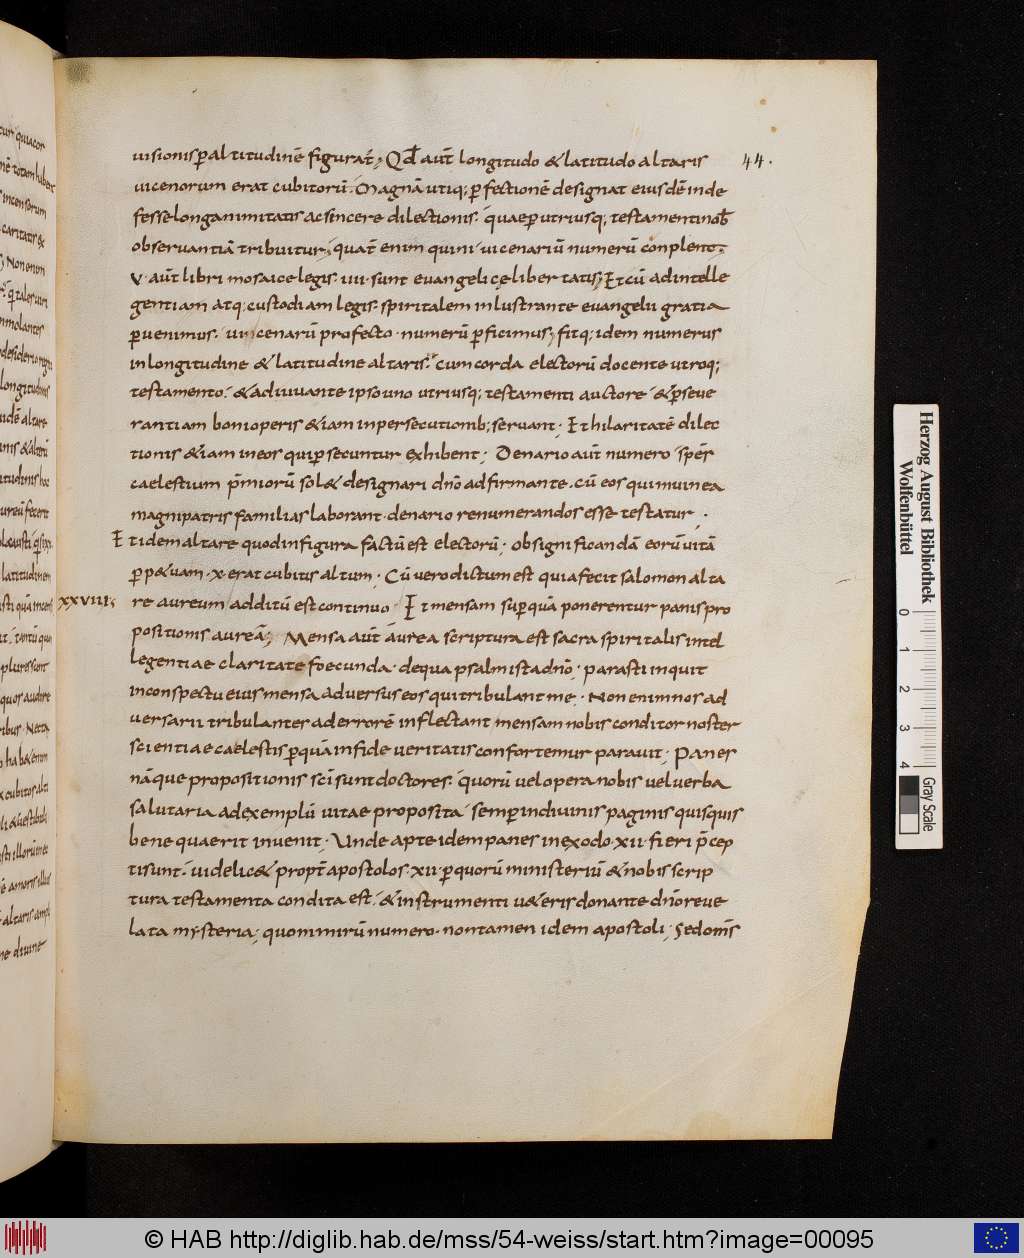 uisionis ꝑ altitudinē figurat̄; Qd̄ aut̄ longitudo & latitudo altaris
44.
uicenorum erat cubitorū. Magnā utiq; ꝑfectionē designat eiusdē inde
fesse longanimitatis ac sincere dilectionis. quae ꝑ utriusq; testamenti nob̄
obseruantiā tribuitur; quat̄ enim quini uicenariū numerū conplent.
V. aut̄ libri mosaice legis. IIII. sunt euangelicę libertatis; Et cū ad intelle
gentiam atq; custodiam legis. spiritalem inlustrante euangelii gratia
ꝑuenimus. uicenarū profecto numerū ꝑficimus; fitq; idem numerus
in longitudine & latitudine altaris. cum corda electorū docente utroq;
testamento. & adiuuante ipso uno utriusq; testamenti auctore & ꝑseue
rantiam boni operis & iam in persecutionib; seruant. Et hilaritatē dilec
tionis & iam in eos qui ꝑsecuntur exhibent; Denario aut̄ numero sꝑer
caelestium p̄miorū sol& designari dnō adfirmante. cū eos qui in uinea
magni patris familias laborant. denario renumerandos esse testatur.
Et idem altare quod in figura factū est electorū. ob significandā eorū uitā
ꝑp&uam. X. erat cubitus altum; Cū uero dictum est quia fecit salomon alta
XXVIII; re aureum additū est continuo. Et mensam suꝑ quā ponerentur panis pro
positionis aureā; Mensa aut̄ aurea scriptura est sacra spiritalis intel
legentiae claritate foecunda. de qua psalmista dnō. parasti inquit
in conspectu eius mensa aduersus eos qui tribulant me. Non enim nos ad
uersarii tribulanter ad errorē inflectant mensam nobis conditor noster
scientiae caelestis ꝑ quā in fide ueritatis confortemur parauit; Panes
nāque propositionis scī sunt doctores. quorū uel opera nobis uel uerba
salutaria ad exemplū uitae proposita semꝑ in diuinis paginis quisquis
bene quaerit inuenit. Unde apte idem panes in exodo. XII. fieri p̄cep
ti sunt. uidelic& propt̄ apostolos. XII. ꝑ quorū ministeriū & nobis scrip
tura testamenta condita est. & instrumenti u&eris donante dnō reue
lata mysteria; quo nimirū numero. non tamen idem apostoli; sed om̄s
Herzog August Bibliothek
Wolfenbüttel
0 1 2 3 4
Gray Scale
© HAB http://diglib.hab.de/mss/54-weiss/start.htm?image=00095